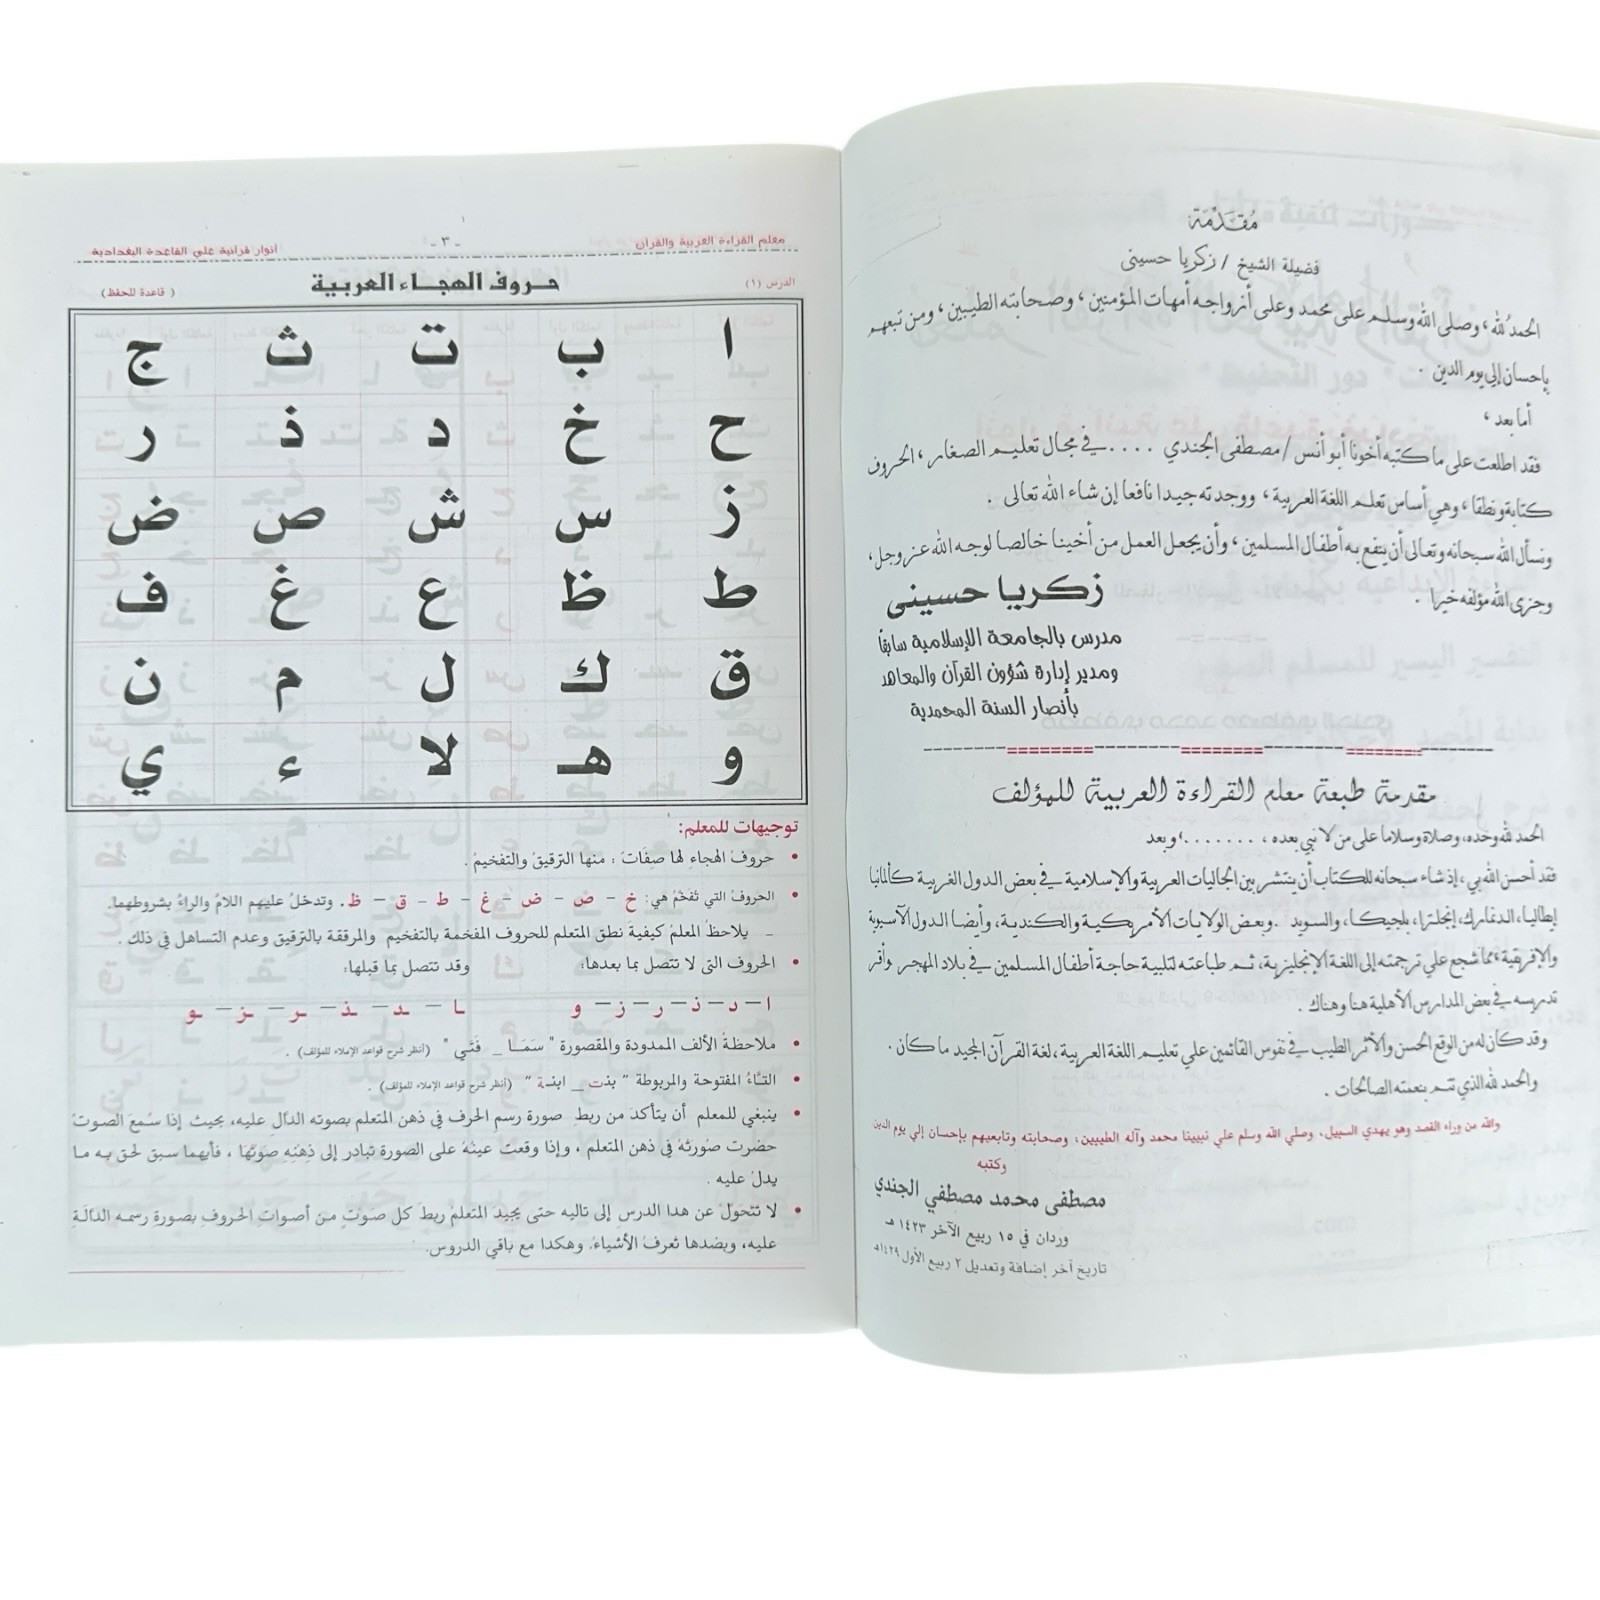 مُقدَّمَة
فضيلة الشيخ / زكريا حسينى
الحمدُ لله ، وصلى الله وسلم على محمد وعلى أزواجه أمهات المؤمنين ، وصحابته الطيبين ، ومن تبعهم
بإحسان إلي يوم الدين .
أما بعد ،
فقد اطلعت على ما كتبه أخونا أبو أنس / مصطفى الجندي .... في مجال تعليم الصغار ، الحروف
كتابة ونطقا ، وهي أساس تعلم اللغة العربية ، ووجدته جيدا نافعا إن شاء الله تعالى .
ونسأل الله سبحانه وتعالى أن ينتفع به أطفال المسلمين ، وأن يجعل العمل من أخينا خالصا لوجه الله عز وجل ،
وجزى الله مؤلفه خيرا .
زكريا حسينى
مدرس بالجامعة الإسلامية سابقا
ومدير إدارة شؤون القرآن والمعاهد
بأنصار السنة المحمدية
مقدمة طبعة معلم القراءة العربية للمؤلف
الحمد لله وحده، وصلاة وسلاما على من لا نبي بعده ، ........، وبعد
فقد أحسن الله بي، إذ شاء سبحانه للكتاب أن ينتشر بين الجاليات العربية والإسلامية في بعض الدول الغربية كألمانيا
إيطاليا، الدنمارك، إنجلترا، بلجيكا، والسويد . وبعض الولايات الأمريكية والكندية، وأيضا الدول الآسيوية
والإفريقية ، مما شجع علي ترجمته إلى اللغة الإنجليزية، ثم طباعته لتلبية حاجة أطفال المسلمين في بلاد المهجر وأقر
تدريسه في بعض المدارس الأهلية هنا وهناك .
وقد كان له من الوقع الحسن والأثر الطيب في نفوس القائمين علي تعليم اللغة العربية ، لغة القرآن المجيد ما كان .
والحمد لله الذي تتم بنعمته الصالحات .
والله من وراء القصد وهو يهدي السبيل، وصلي الله وسلم علي نبيينا محمد وآله الطيبين، وصحابته وتابعيهم بإحسان إلي يوم الدين
وكتبه
مصطفى محمد مصطفي الجندي
وردان في ١٥ ربيع الآخر ١٤٢٣ هـ
تاريخ آخر إضافة وتعديل ٢ ربيع الأول ١٤٢٩هـ
معلم القراءة العربية والقرآن - ٣ - أنوار قرآنية علي القاعدة البغدادية
الدرس (١) حروف الهجاء العربية ( قاعدة للحفظ)
ا ب ت ث ج
ح خ د ذ ر
ز س ش ص ض
ط ظ ع غ ف
ق ك ل م ن
و هـ لا ء ي
توجيهات للمعلم:
• حروفُ الهجاءِ لها صِفَات : منها الترقيقُ والتفخيمُ .
• الحروفُ التي تُفخَّمُ هي: خ – ص – ض – غ – ط – ق – ظ . وتدخلُ عليهم اللامُ والراءُ بشروطهما.
– يلاحظُ المعلمُ كيفية نطق المتعلم للحروف المفخمة بالتفخيم والمرققة بالترقيق وعدم التساهل في ذلك .
• الحروف التى لا تتصل بما بعدها: وقد تتصل بما قبلها:
ا – د – ذ – ر – ز – و ـا – ـد – ـذ – ـر – ـز – ـو
• ملاحظةُ الألف الممدودة والمقصورة " سَمَـا _ فَتَـي " (أنظر شرح قواعد الإملاء للمؤلف) .
• التـاءُ المفتوحة والمربوطة " بنت _ ابنـة " (أنظر شرح قواعد الإملاء للمؤلف) .
• ينبغي للمعلم أن يتأكدَ من ربط صورة رسم الحرف في ذهن المتعلم بصوته الدّال عليه، بحيث إذا سُمعَ الصوتُ
حضرت صُورتُهُ في ذهن المتعلم ، وإذا وقعت عينُهُ على الصورة تبادر إلى ذِهْنِهِ صَوتُهَا ، فأيهما سبق لحق به ما
يدلُ عليه .
• لا تتحولْ عن هذا الدرسِ إلى تاليه حتى يجيدَ المتعلمُ ربطَ كل صَوتٍ من أصوات الحروفِ بصورة رسمه الدالّة
عليه، وبضدها تعرفُ الأشياءُ. وهكذا مع باقي الدروس.